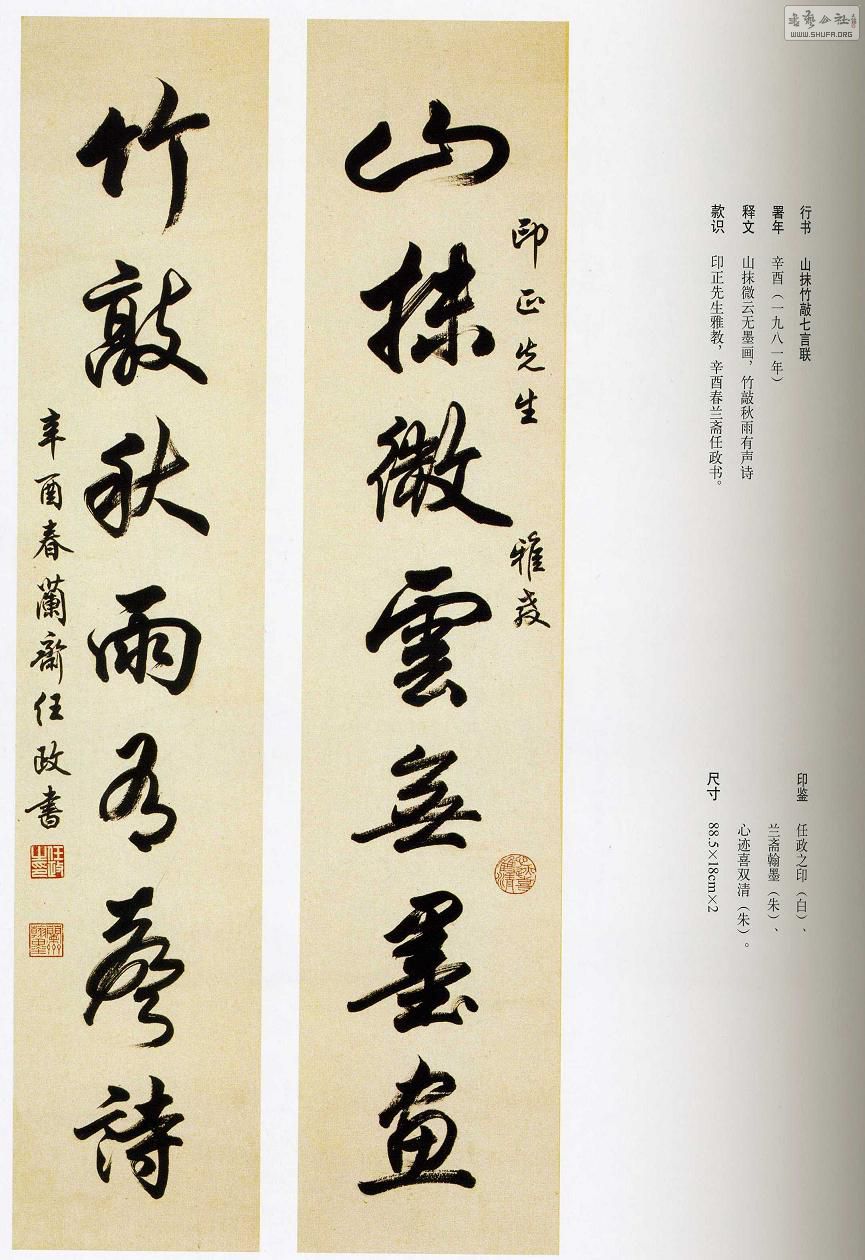 书艺公社
WWW.SHUFA.ORG
行书 山抹竹敲七言联
署年 辛酉（一九八一年）
释文 山抹微云无墨画，竹敲秋雨有声诗
款识 印正先生雅教，辛酉春兰斋任政书。
印鉴 任政之印（白）、
兰斋翰墨（朱）、
心迹喜双清（朱）。
尺寸 88.5×18cm×2
印正先生 雅教
山抹微雲無墨画
竹敲秋雨有聲詩
辛酉春蘭斋任政書
任政之印
蘭斋翰墨
心迹喜双清